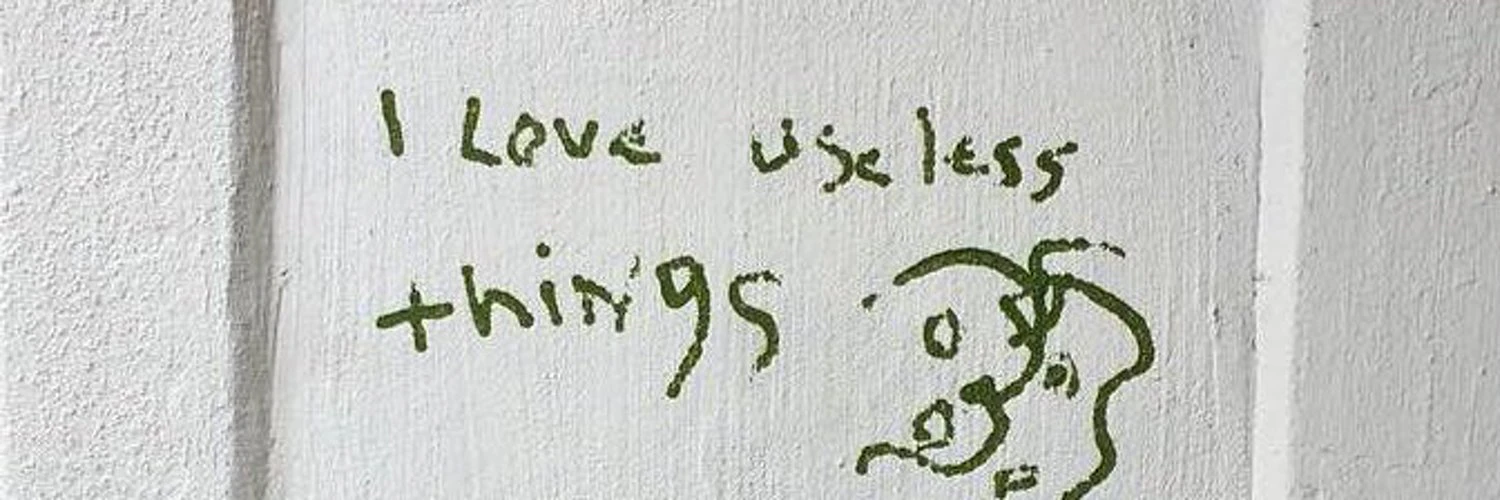 I Love useless
things